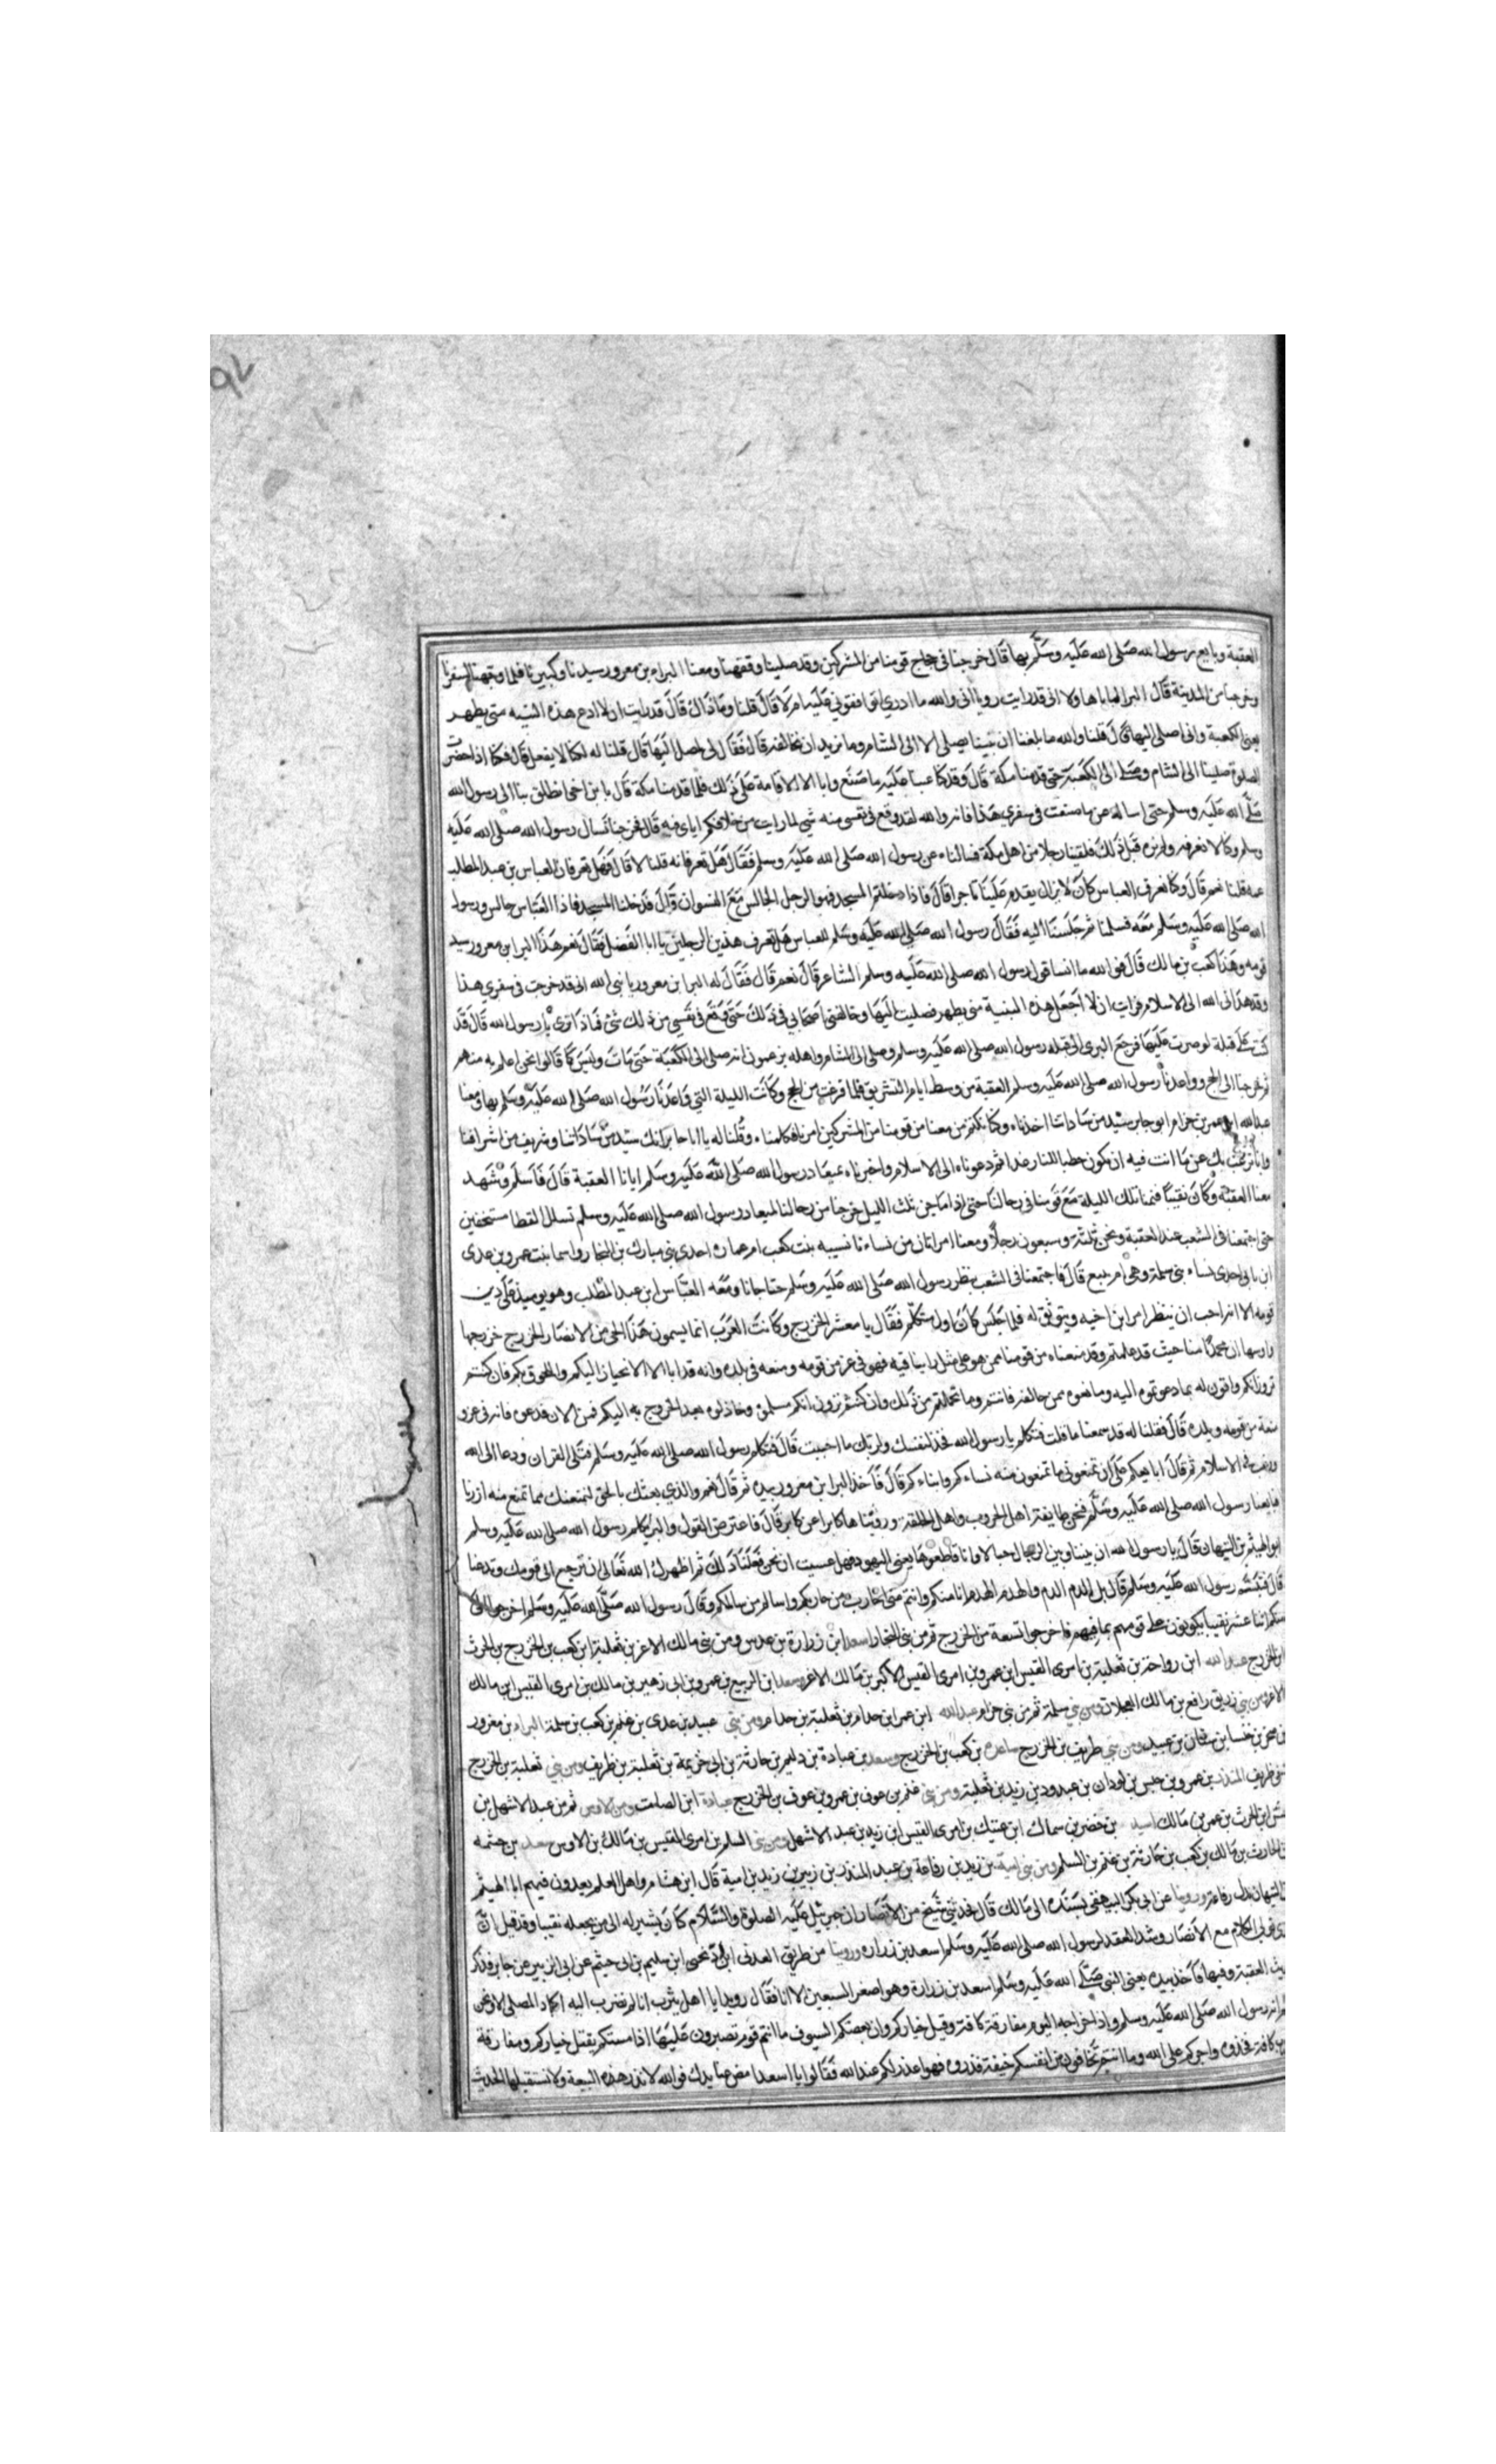 العقبة وبايع رسول الله صلى الله عليه وسلم بها قال خرجنا في حجاج قومنا من المشركين وقد صلينا وفقهنا ومعنا البراء بن معرور سيدنا وكبيرنا فلما وجهنا لسفرنا
وخرجنا من المدينة قال البرا لنا يا هاولا اني قد رايت رويا اني والله ما ادري اتوافقوني عليه ام لا قال قلنا وما ذاك قال قد رايت ان لا ادع هذه البنيه مني بظهر
يعني الكعبة واني اصلي اليها قال قلنا والله ما بلغنا ان نبينا يصلي الا الى الشام وما نريد ان نخالفه قال فقال اني لمصل اليها قال قلنا له لكنا لا نفعل قال فكنا اذا حضرت
الصلوة صلينا الى الشام وصلى الى الكعبة حتى قدمنا مكة قال وقد كنا عبنا عليه ما صنع وابا الا الاقامة على ذلك فلما قدمنا مكة قال يا بن اخي انطلق بنا الى رسول الله
صلى الله عليه وسلم حتى اساله عن ما صنعت في سفري هذا فانه والله لقد وقع في نفسي منه شي لما رايت من خلافكم اياي فيه قال فخرجنا نسال رسول الله صلى الله عليه
وسلم وكنا لا نعرفه ولم نره قبل ذلك فلقينا رجلا من اهل مكة فسالناه عن رسول الله صلى الله عليه وسلم فقال هل تعرفانه قلنا لا قال فهل تعرفان العباس بن عبد المطلب
عمه قلنا نعم قال وكنا نعرف العباس كان لا يزال يقدم علينا تاجرا قال فاذا دخلتم المسجد فهو الرجل الجالس مع قال فدخلنا المسجد فاذا العباس جالس ورسول
الله صلى الله عليه وسلم معه فسلمنا ثم جلسنا اليه فقال رسول الله صلى الله عليه وسلم للعباس هل تعرف هذين الرجلين يا ابا الفضل فقال نعم هذا البرا بن معرور سيد
قومه وهذا كعب بن مالك قال فوالله ما انسا قول رسول الله صلى الله عليه وسلم الشاعر قال نعم قال فقال له البرا بن معرور يا نبي الله اني قد خرجت في سفري هذا
وقد هداني الله الى الاسلام فرايت ان لا اجعل هذه البنية مني بظهر فصليت اليها وخالفني اصحابي في ذلك حتى وقع في نفسي من ذلك شئ فماذا ترى يا رسول الله قال قد
كنت على قبلة لو صبرت عليها فرجع البرى الى قبله رسول الله صلى الله عليه وسلم وصلى الى الشام واهله يزعمون انه صلى الى الكعبة حتى مات وليس كما قالوا نحن اعلم به منهم
ثم خرجنا الى الحج وواعدنا رسول الله صلى الله عليه وسلم العقبة من وسط ايام التشريق فلما فرغت من الحج وكانت الليلة التي واعدنا رسول الله صلى الله عليه وسلم بها ومعنا
عبدالله بن عمر بن حرام ابو جابر سيد من ساداتنا اخذناه وكنا نكتم من معنا من قومنا من المشركين امرنا فكلمناه وقلنا له يا ابا جابر انك سيد من ساداتنا وشريف من اشرافنا
وانا نرغب بك عن ما انت فيه ان تكون حطبا للنار غدا ثم دعوناه الى الاسلام واخبرناه بميعاد رسول الله صلى الله عليه وسلم ايانا العقبة قال فاسلم وشهد
معنا العقبة وكان نقيبا فنمنا تلك الليلة مع قومنا في رحالنا حتى اذا مضى ثلث الليل خرجنا من رحالنا لميعاد رسول الله صلى الله عليه وسلم تسلل القطا مستخفين
حتى اجتمعنا في الشعب عند العقبة ونحن ثلثة وسبعون رجلا ومعنا امراتان من نساءنا نسيبه بنت كعب ام عماره احدى بني مازن بن النجار واسما بنت عمرو بن عدى
ابن نابي احدى نساء بني سلمة وهي ام منيع قال فاجتمعنا في الشعب ننظر رسول الله صلى الله عليه وسلم حتا جانا ومعه العباس ابن عبد المطلب وهو يوميذ على دين
قومه الا انه احب ان ينظر امر ابن اخيه ويتوثق له فلما جلس كان اول متكلم فقال يا معشر الخزرج وكانت العرب انما يسمون هذا الحي من الانصار الخزرج خزرجها
واوسها ان محمدا منا حيث قد علمتم وقد منعناه من قومنا ممن هو على مثل راينا فيه فهو في عز من قومه ومنعه في بلده وانه قد ابا الا الانحياز اليكم واللحوق بكم فان كنتم
ترون انكم وافون له بما دعوتموه اليه ومانعوه ممن خالفه فانتم وما تحملتم من ذلك وان كنتم ترون انكم مسلموه وخاذلوه بعد الخروج به اليكم فمن الان فدعوه فانه في عز و
منعة من قومه وبلده قال فقلنا له قد سمعنا ما قلت فتكلم يا رسول الله فخذ لنفسك ولربك ما احببت قال فتكلم رسول الله صلى الله عليه وسلم فتلى القران ودعا الى الله
ورغب في الاسلام ثم قال ابايعكم على ان تمنعوني ما تمنعون منه نساءكم وابناءكم قال فاخذ البرا بن معرور بيده ثم قال نعم والذي بعثك بالحق لنمنعنك مما نمنع منه ازرنا
فبايعنا رسول الله صلى الله عليه وسلم فنحن اهل الحروب واهل الحلقة ورثناها كابرا عن كابر قال فاعترض القول والبرا يكلم رسول الله صلى الله عليه وسلم
ابو الهيثم بن التيهان قال يا رسول الله ان بيننا وبين الرجال حبالا وانا قاطعوها يعني اليهود فهل عسيت ان نحن فعلنا ذلك ثم اظهرك الله تعالى ان ترجع الى قومك وتدعنا
قال فتبسم رسول الله عليه وسلم ثم قال بل الدم الدم والهدم الهدم انا منكم وانتم مني احارب من حاربكم واسالم من سالمكم وقال رسول الله صلى الله عليه وسلم اخرجوا الي
منكم اثنا عشر نقيبا يكونون على قومهم بما فيهم فاخرجوا تسعة من الخزرج ثم من بني النجار اسعد ابن زرارة بن عدس ومن بني مالك الاغر بن ثعلبة ابن كعب بن الخزرج بن الحرث
ابن الخزرج عبدالله ابن رواحة بن ثعلبة بن امرى القيس ابن عمرو بن امرى القيس الاكبر بن مالك الاغر وسعد ابن الربيع بن عمرو بن ابي زهير بن مالك بن امرى القيس ابن مالك
الاغر ومن بني زريق رافع بن مالك العجلان ومن بني سلمة ثم من بني حرام عبد الله ابن عمر ابن حرام بن ثعلبة بن حرام ومن بني عبيد بن عدى بن غنم بن كعب بن سلمة البراء بن معرور
بن صخر بن خنسا بن سنان بن عبيد ومن بني طريف بن الخزرج ساعدة بن كعب بن الخزرج وسعد بن عبادة بن دليم بن حارثة بن ابي خزيمة بن ثعلبة بن طريف ومن بني ثعلبة بن الخزرج
طريف المنذر بن عمرو بن خنيس بن لوذان بن عبدود بن زيد بن ثعلبة ومن بني غنم بن عوف بن عمرو بن عوف بن الخزرج عبادة ابن الصامت ومن الاوس ثم من عبد الاشهل بن
ابن الحرث بن عمر بن مالك اسيد بن حضير بن سماك ابن عتيك بن امرى القيس ابن زيد بن عبد الاشهل ومن بني السلم بن امرى القيس بن مالك بن الاوس سعد بن خيثمه
بن الحارث بن مالك بن كعب بن حارثة بن غنم بن السلم ومن بني امية بن زيد بن رفاعة بن عبد المنذر بن زبير بن زيد بن امية قال ابن هشام واهل العلم يعدون فيهم ابا الهيثم
بن التيهان بدل رفاعة وروينا عن ابي بكر البيهقي بسنده الى مالك قال فحدثني شيخ من الانصار ان جبرئيل عليه الصلوة والسلام كان يشير له الى من يجعله نقيبا وقد قيل ان
الذي ولي الكلام مع الانصار وشد العقد لرسول الله صلى الله عليه وسلم اسعد بن زراره وروينا من طريق العدني ابن سليم بن ابي خيثم عن ابي الزبير عن جابر فذكر
حديث العقبة وفيها فاخذ بيده يعني النبي صلى الله عليه وسلم اسعد بن زرارة وهو اصغر السبعين الا انا فقال رويدا يا اهل يثرب انا لم نضرب اليه اكباد المطي الا ونحن
نعلم انه رسول الله صلى الله عليه وسلم واذ اخراجه اليوم مفارقة كافة وقتل خياركم وان تعضكم السيوف ما انتم قوم تصبرون عليها اذا مستكم بقتل خياركم ومفارقة
العرب كافة فخذوه واجركم على الله وما انتم تخافون من انفسكم خيفة فذروه فهو اعذر لكم عند الله فقالوا يا اسعد امض عنا يدك فوالله لا نذر هذه البيعة ولا نستقيلها الحديث